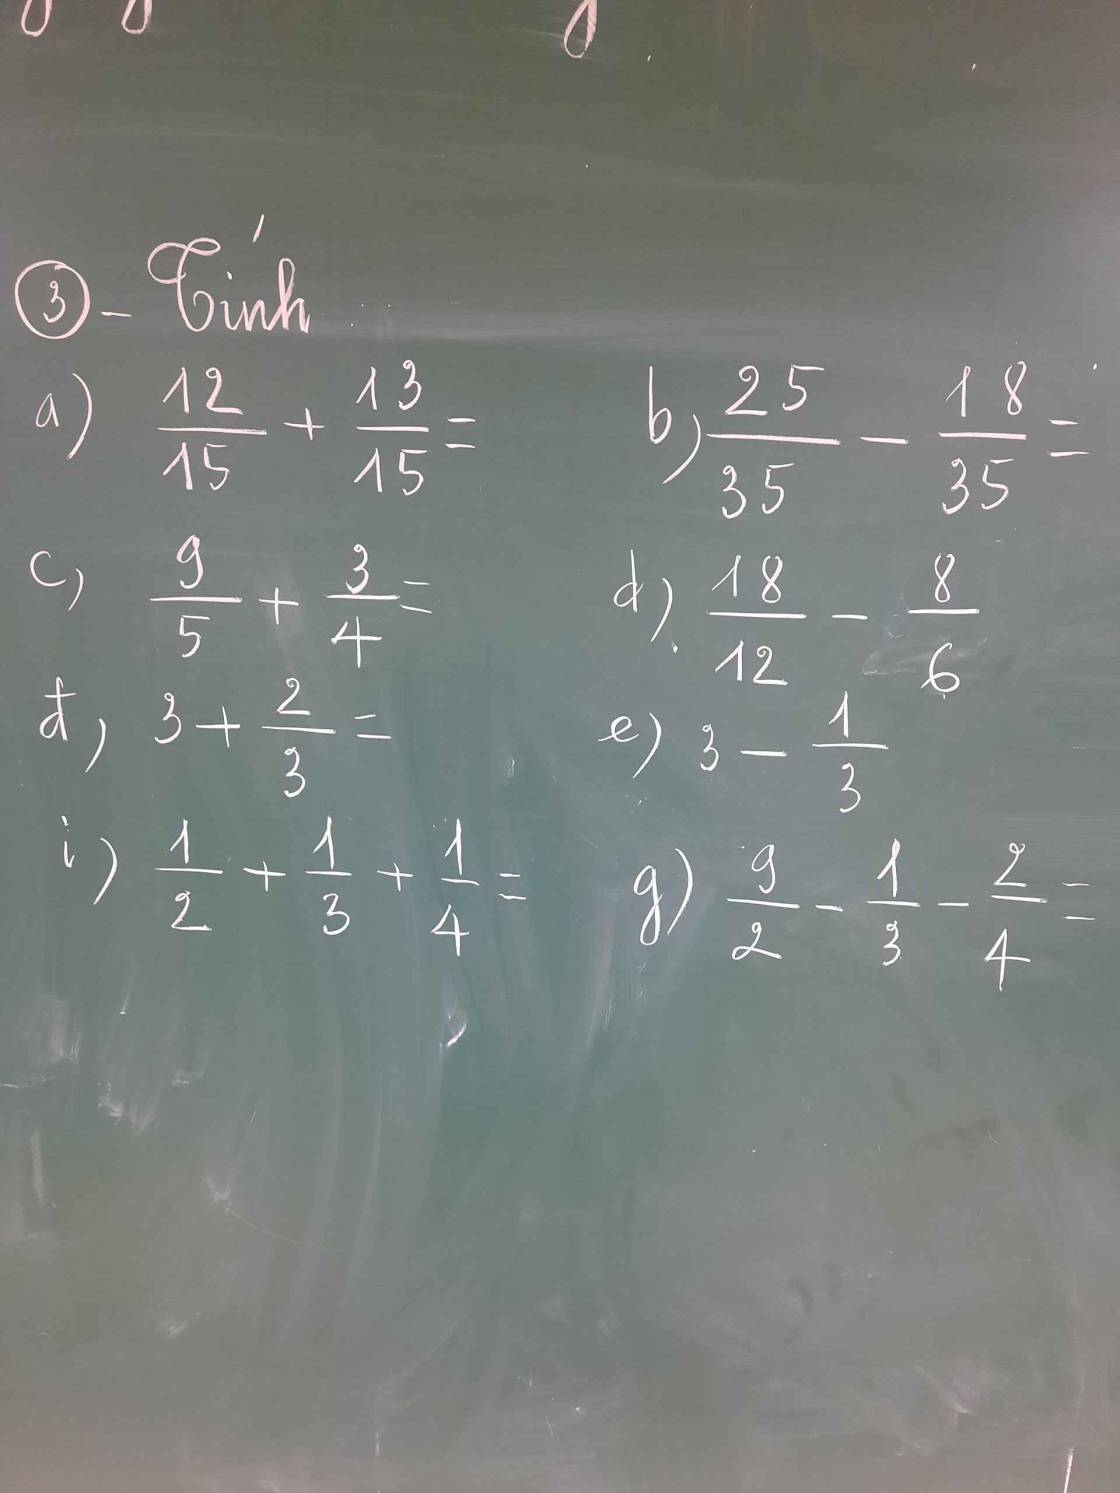 ③- Tính
a) 12/15 + 13/15 = b) 25/35 - 18/35 =
c, 9/5 + 3/4 = d) 18/12 - 8/6
đ, 3 + 2/3 = e) 3 - 1/3
i) 1/2 + 1/3 + 1/4 = g) 9/2 - 1/3 - 2/4 =